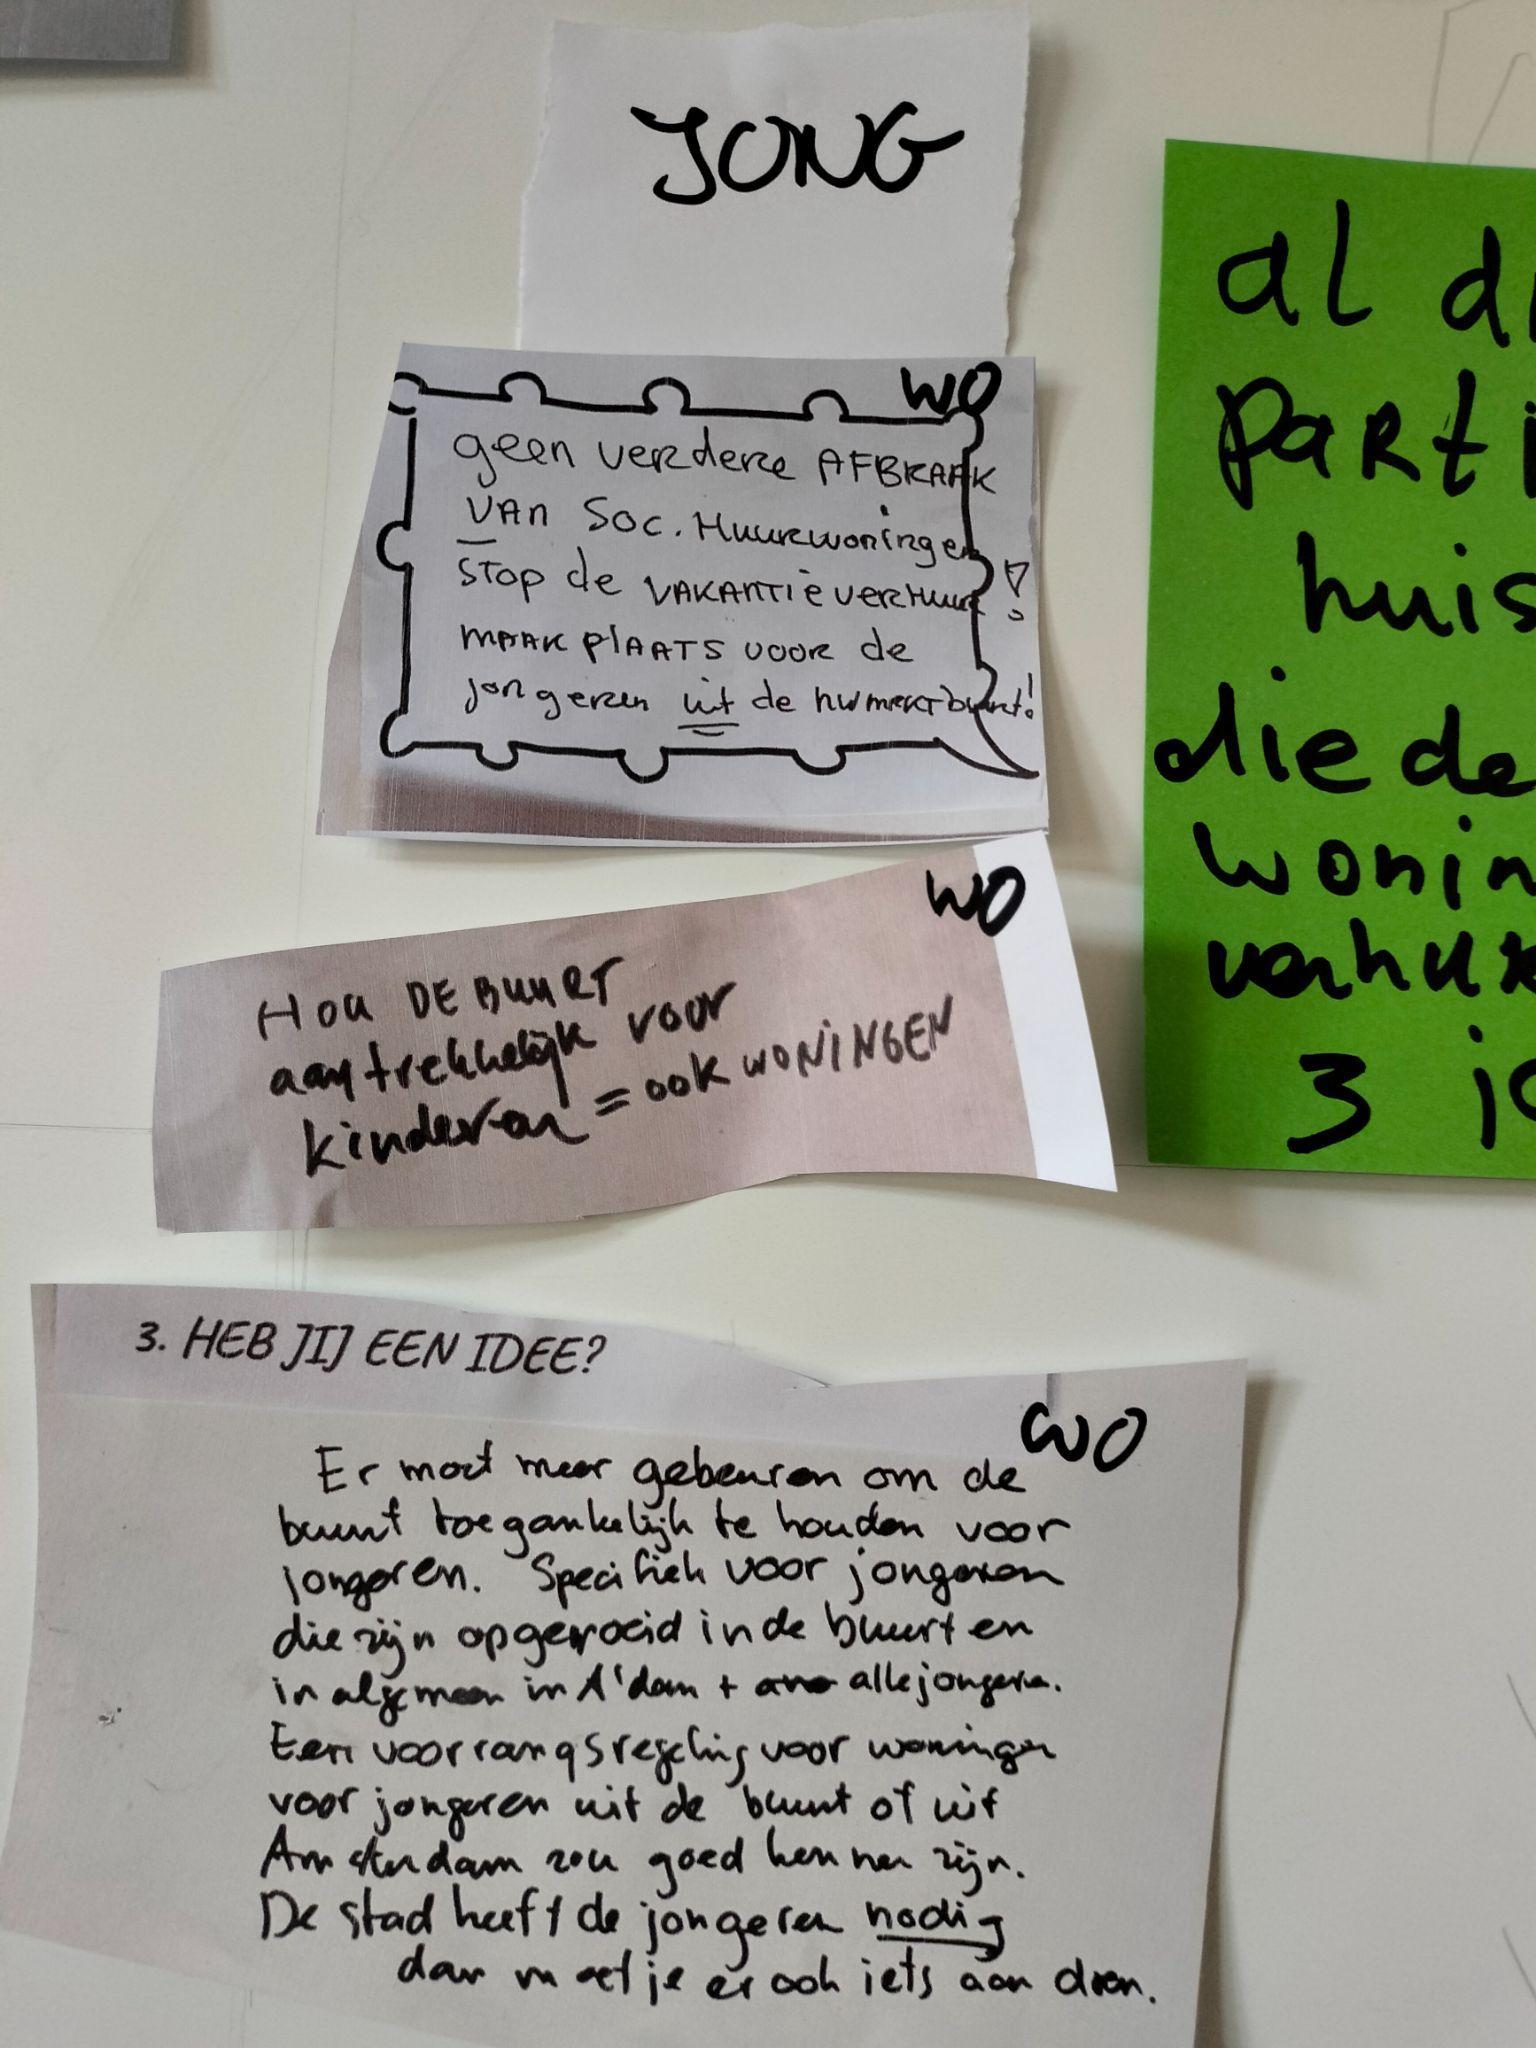 JONG
WO
geen verdere AFBRAAK
VAN Soc. Huurwoningen
STOP de VAKANTIEVERHUUR!
MAAK PLAATS VOOR de
jongeren uit de nwmarktbuurt!
WO
HOU DE BUURT
aantrekkelijk voor
kinderen = ook WONINGEN
3. HEB JIJ EEN IDEE?
WO
Er moet meer gebeuren om de
buurt toegankelijk te houden voor
jongeren. Specifiek voor jongeren
die zijn opgegroeid in de buurt en
in algemeen in A'dam + alle jongeren.
Een voorrangsregeling voor woningen
voor jongeren uit de buurt of uit
Amsterdam zou goed kennen zijn.
De stad heeft de jongeren nodig
dan moet je er ook iets aan doen.
al di
parti
huis
die de
wonin
verhu
3 j